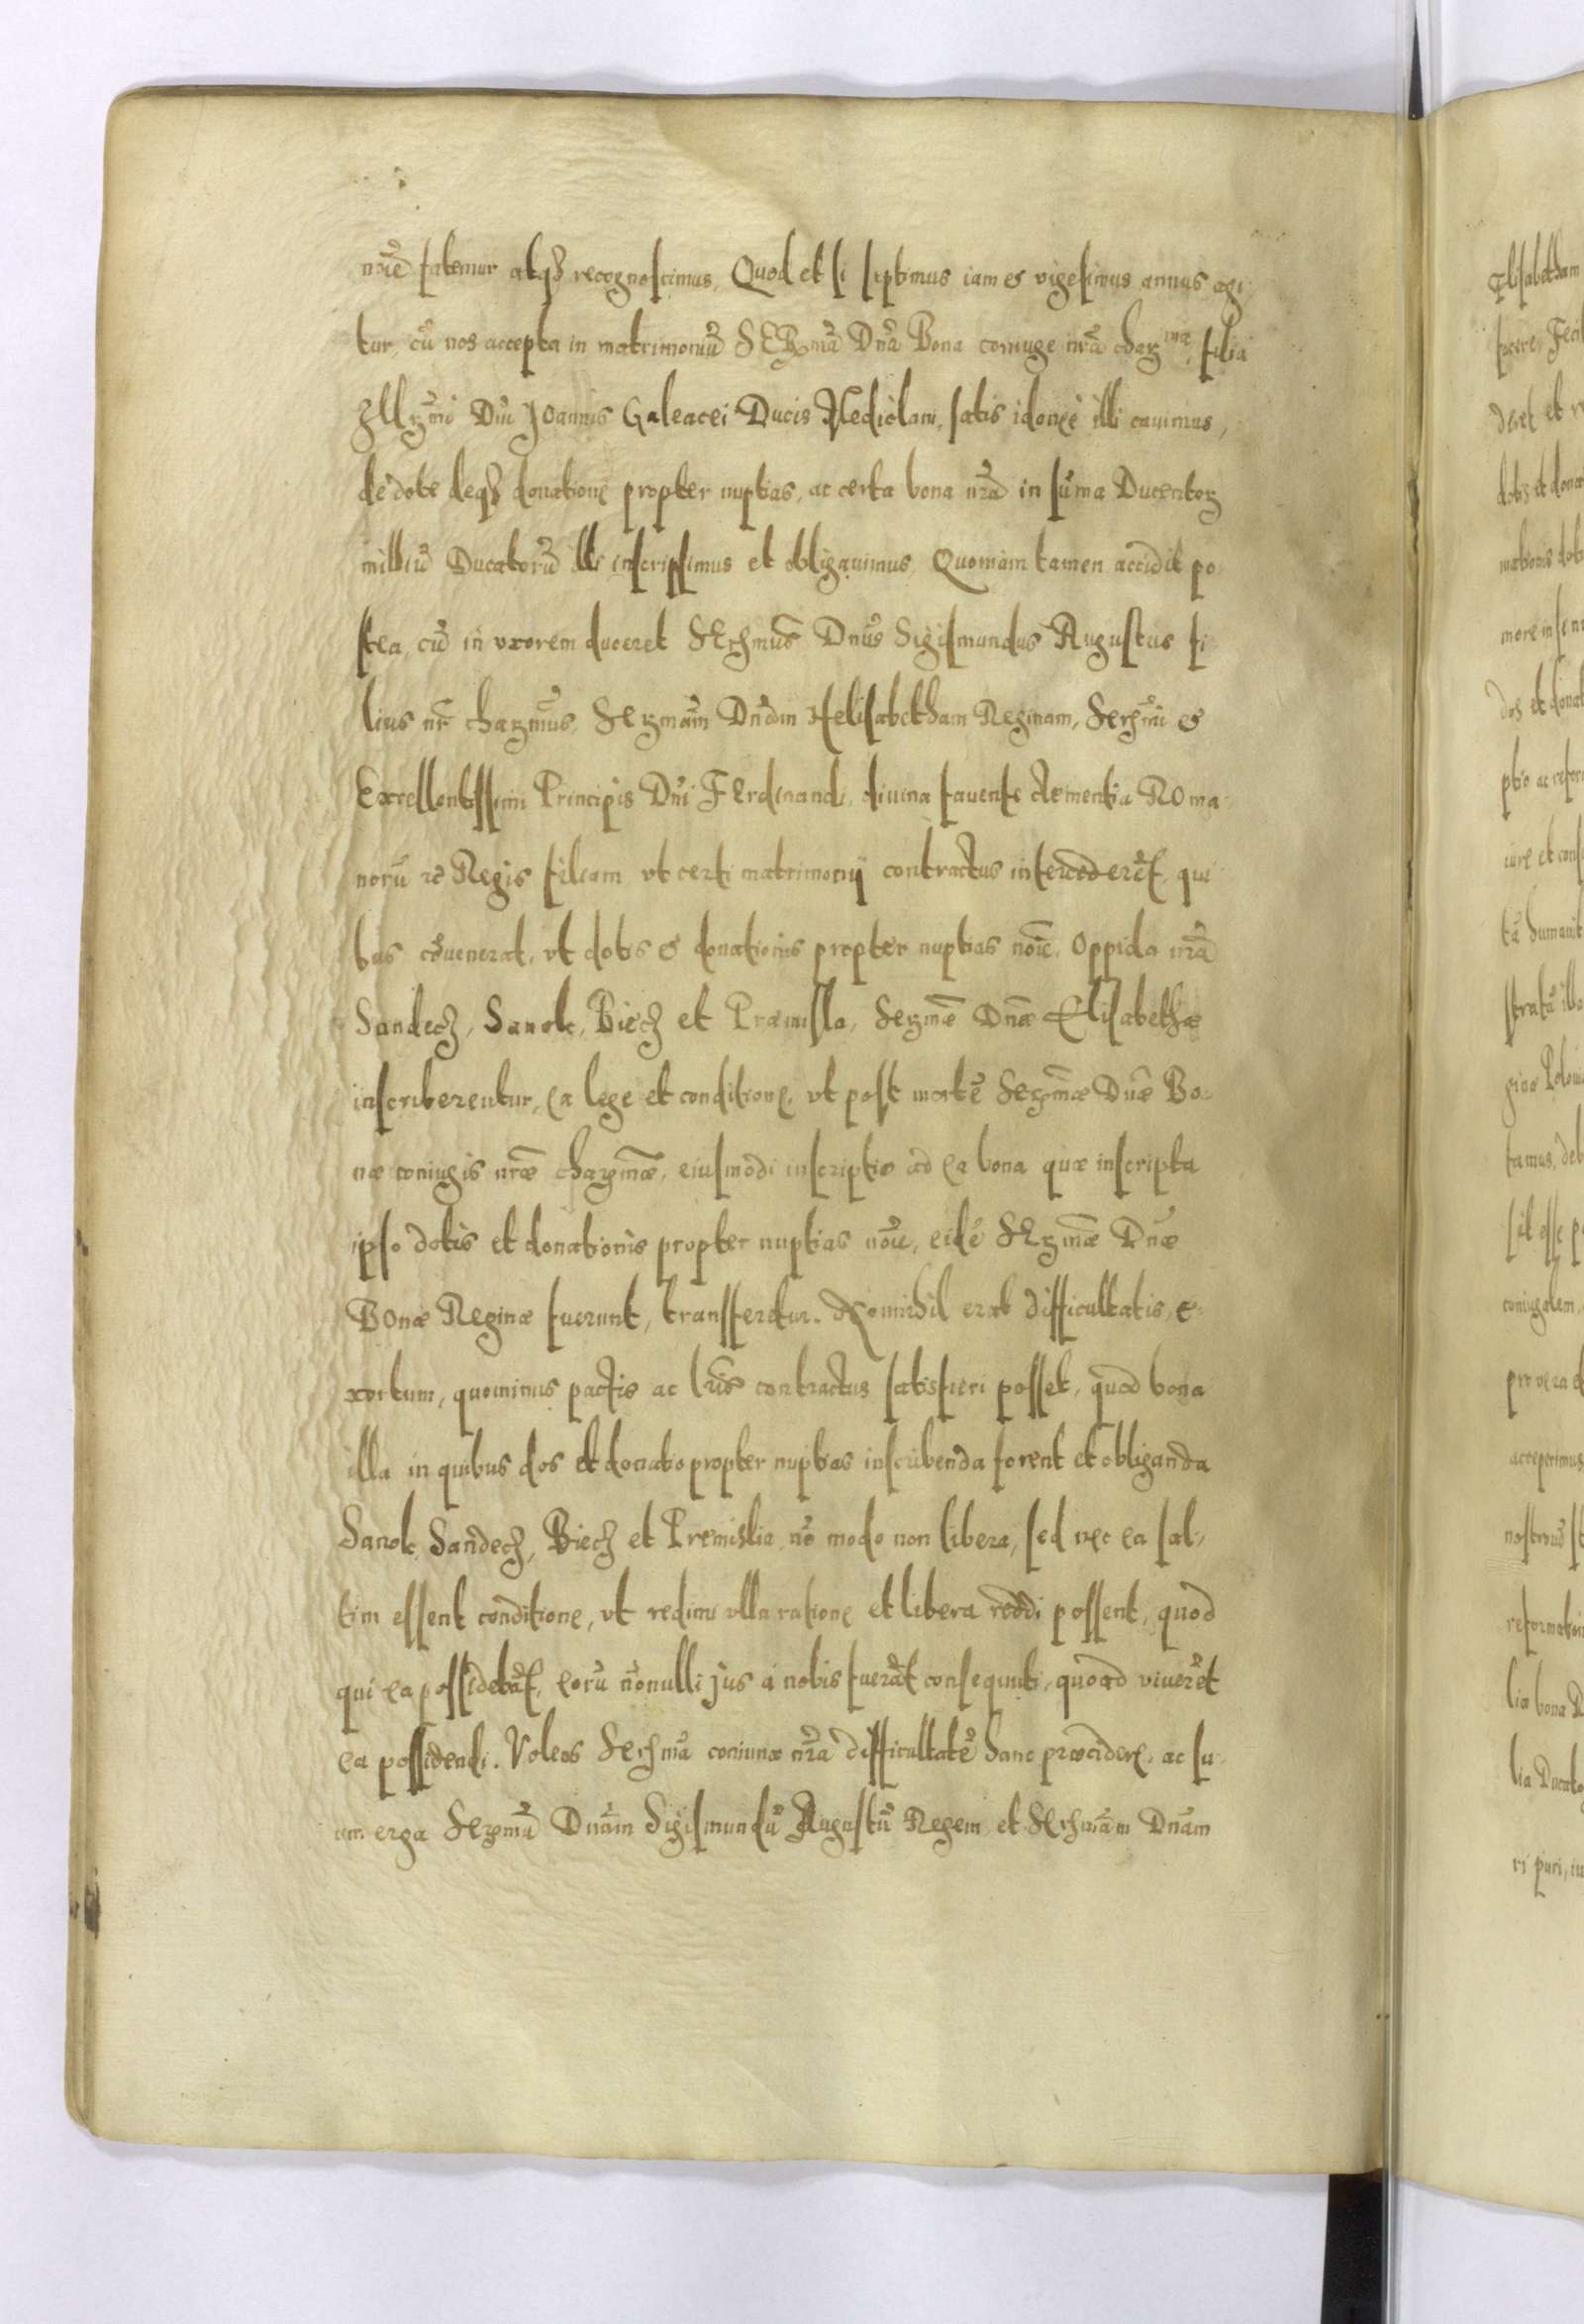 nr̃e fatemur atqꝫ recognoscimus, Quod et si septimus iam et vigesimus annus agi
tur, cũ nos accepta in matrimoniũ SERꝫmã Dnã Bona coniuge nrã charꝫma filia
Illꝫmi Dni Joannis Galeacei Ducis Mediolani, satis idonee illi cauimus,
de dote deqꝫ donatione propter nuptias, ac certa bona nrã in sũma Ducentorꝫ
milliũ Ducatorũ illi inscripsimus et obligauimus, Quoniam tamen accidit po
stea, cũ in vxorem duceret Serꝫmus Dnus Sigismundus Augustus fi
lius nr̃ charꝫmus, Serꝫmam Dnam Helisabetham Reginam, Serꝫmi et
Excellentissimi Principis Dni Ferdinandi, diuina fauente clementia Roma
norũ ꝛc Regis filiam vt certi matrimonij contractus intercederẽt, qui
bus cõuenerat, vt dotis et donationis propter nuptias noĩe, Oppida nrã
Sandecz, Sanok, Biecz et Præmisla, Serꝫmæ Dnæ Elisabethæ
inscriberentur, ea lege et conditione, vt post mortẽ Serꝫmæ Dnæ Bo
næ coniugis nræ charꝫmæ, eiusmodi inscriptio ad ea bona quæ inscripta
ipso dotis et donationis propter nuptias noĩe, eidẽ Serꝫmæ Dnæ
Bonæ Reginæ fuerunt, transferetur. nonnihil erat difficultatis, e
xortum, quominus pactis ac lr̃is contractus satisfieri posset, quod bona
illa in quibus dos et donatio propter nuptias inscribenda forent et obliganda
Sanok, Sandecz, Biecz et Premislia nõ modo non libera, sed nec ea sal
tim essent conditione, vt redimi vlla ratione et libera reddi possent, quod
qui ea possidebãt, eorũ nõnulli jus a nobis fuerãt consequuti, quoad viuerẽt
ea possidendi. Volens Serꝫma coniunx nrã difficultatẽ hanc præcidere, ac su
um erga Serꝫmũ Dnũm Sigismundũ Augustũ Regem et Serꝫmam Dnam